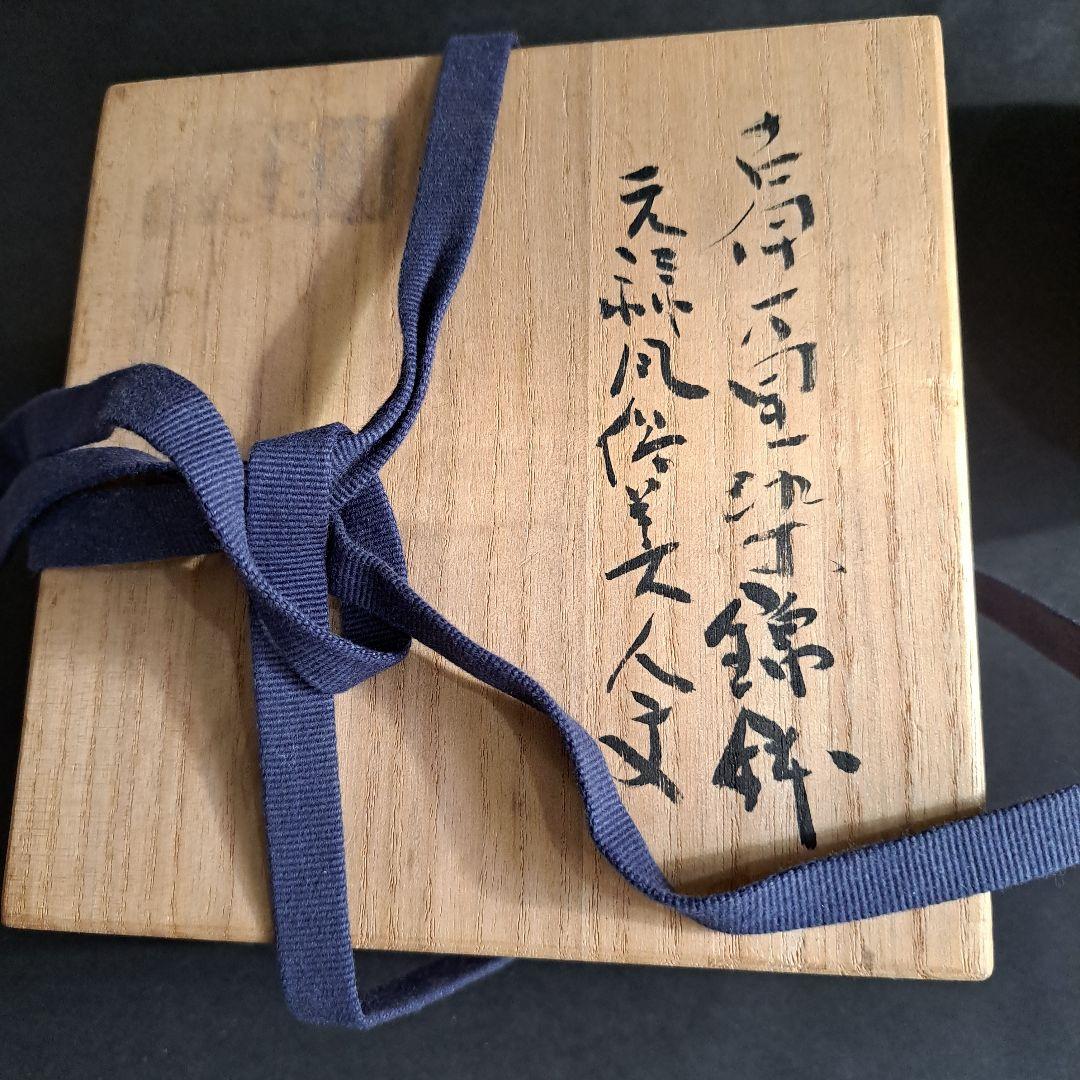 古伊万里染錦鉢
元禄風俗美人文